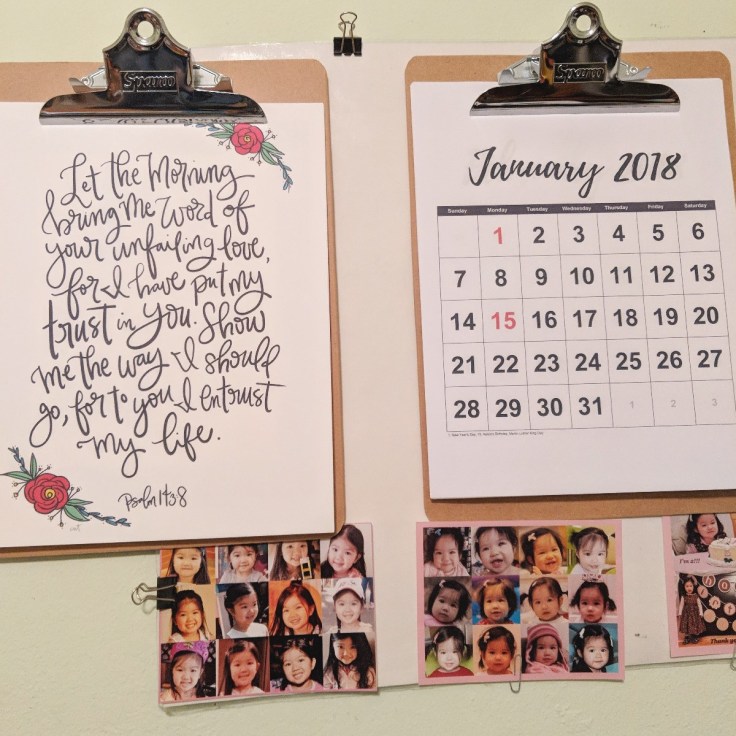 Sparco
Let the Morning
bring Me word of
your unfailing love,
for I have put my
trust in You. Show
Me the way I should
go, for to you I entrust
My life.
Psalm 143:8
Sparco
January 2018
Sunday Monday Tuesday Wednesday Thursday Friday Saturday
1 2 3 4 5 6
7 8 9 10 11 12 13
14 15 16 17 18 19 20
21 22 23 24 25 26 27
28 29 30 31 1 2 3